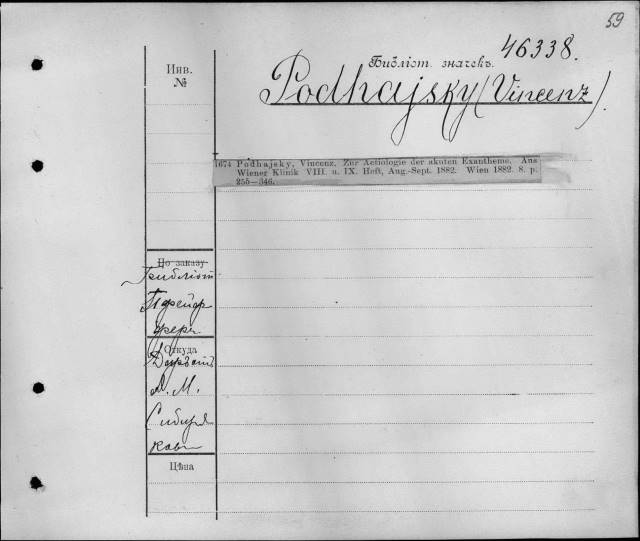 59
46338.
Библіот. значекъ.
Инв.
№
Podhajsky (Vincenz).
1674 Podhajsky, Vincenz. Zur Aetiologie der akuten Exantheme. Aus
Wiener Klinik VIII. u. IX. Heft, Aug.-Sept. 1882. Wien 1882. 8. p.
255—346.
По заказу
Библіот
Пфейф
феръ
Откуда
Даръ отъ
А. М.
Сибиря
кова
Цѣна